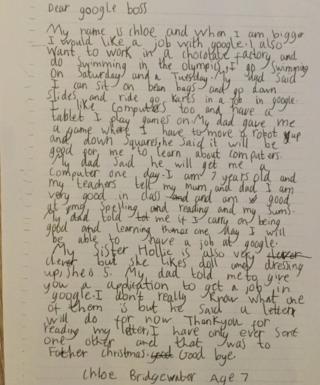 Dear google boss
My name is Chloe and when I am bigger
I would like a job with google. I also
want to work in a chocolate factory and
do swimming in the olympics. I go swimming
on Saturday and a Tuesday. My dad said
I can sit on bean bags and go down
slides and ride go karts in a job in google.
I like computers too and have a
tablet I play games on. My dad gave me
a game where I have to move a robot up
and down squares, he said it will be
good for me to learn about computers.
My dad said he will get me a
computer one day. I am 7 years old and
my teachers tell my mum and dad I am
very good in class and am good
at my spelling and reading and my sums.
My dad told me if I carry on being
good and learning things one day I will
be able to have a job at google.
My sister Hollie is also very
clever but she likes doll and dressing
up, she is 5. My dad told me to give
you a application to get a job in
google. I don't really know what one
of them is but he said a letter
will do for now. Thankyou for
reading my letter, I have only ever sent
one other and that was to
Father christmas. Good bye.
Chloe Bridgewater Age 7